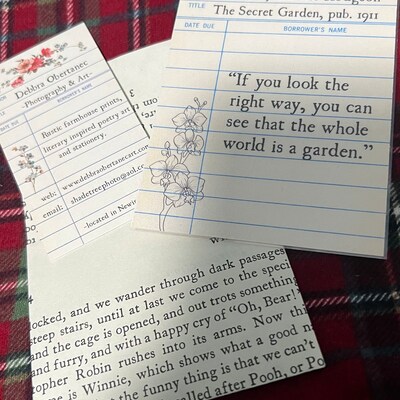 TITLE The Secret Garden, pub. 1911
DATE DUE BORROWER'S NAME
"If you look the
right way, you can
see that the whole
world is a garden."
Debbra Obertanec
-Photography & Art-
DATE DUE BORROWER'S NAME
Rustic farmhouse prints,
literary inspired poetry art
and stationery.
web: www.debbraobertanecart.com
email: shadetreephoto@aol.co
-located in New
ocked, and we wander through dark passages
steep stairs, until at last we come to the speci
and the cage is opened, and out trots something
and furry, and with a happy cry of "Oh, Bear!"
topher Robin rushes into its arms. Now thi
me is Winnie, which shows what a good n
t the funny thing is that we can't
called after Pooh, or Po